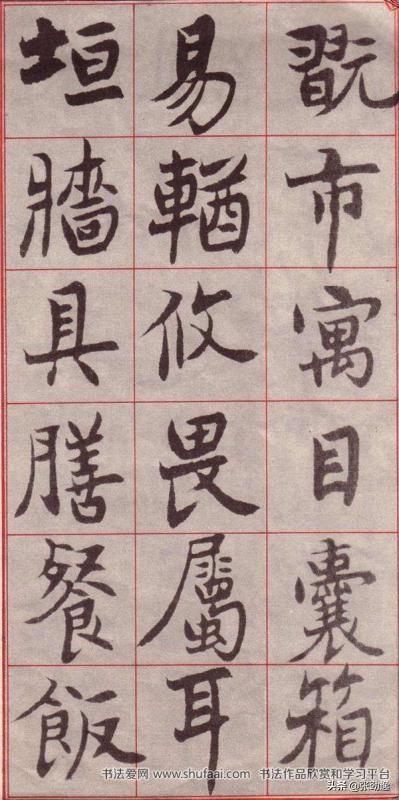 翫市寓目囊箱
易輶攸畏屬耳
垣牆具膳餐飯
书法爱网 www.shufaai.com 书法作品欣赏和学习平台
头条@张劲逸